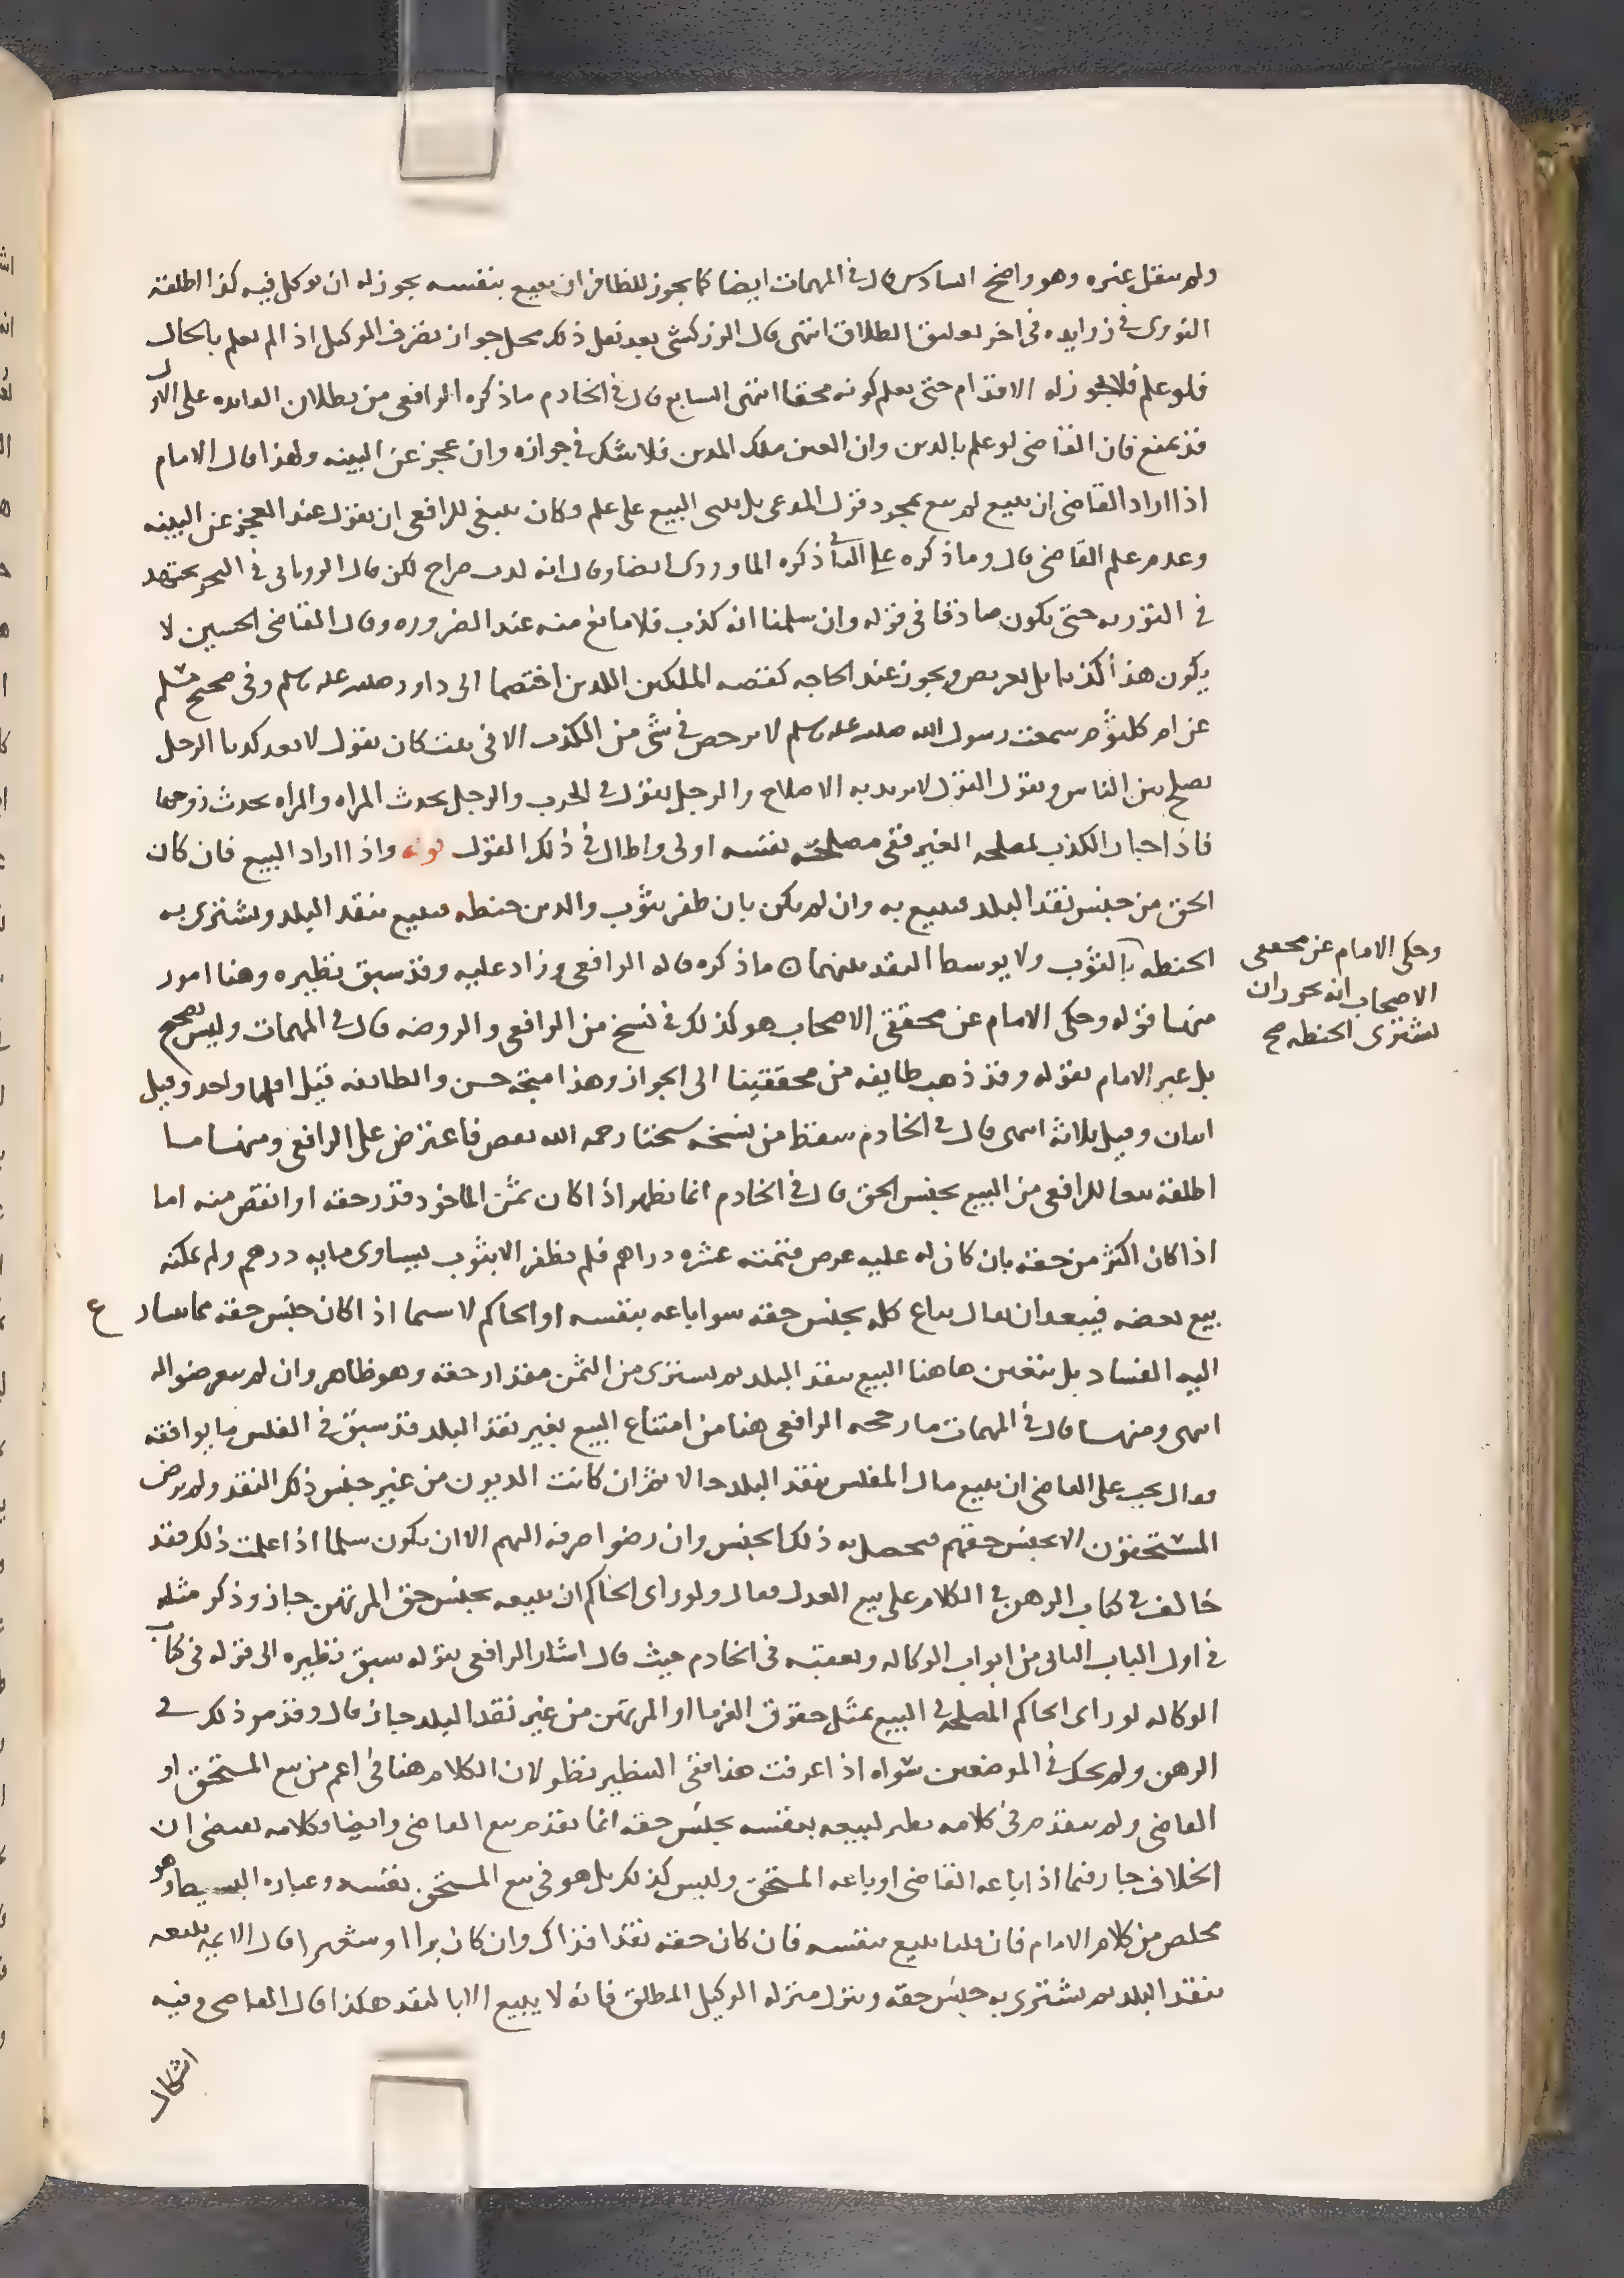 ولم ينقل غيره وهو واضح السادس قال في المهمات ايضا كما يجوز للظافر ان يبيع بنفسه يجوز له ان يوكل فيه كذا اطلقه
النووي في زوايده في اخر تعليق الطلاق انتهى قال الزركشي بعد نقل ذلك محل جواز تصرف الوكيل اذا لم يعلم بالحال
فلو علم فلا يجوز له الاقدام حتى يعلم كونه محقا انتهى السابع قال في الخادم ما ذكره الرافعي من بطلان الفايده على
قد يمنع فان القاضي لو علم بالدين وان العين ملك المدين فلا شك في جوازه وان عجز عن البينه ولهذا قال الامام
اذا اراد القاضي ان يبيع لم يبع بمجرد قول المدعي بل يبني البيع على علم وكان ينبغي للرافعي ان يقول عند العجز عن البينه
وعدم علم القاضي قال وما ذكره على الثاني ذكره الماوردي ايضا وقال انه كذب صراح لكن قال الروياني في البحر يجتهد
في التوريه حتى يكون صادقا في قوله وان سلمنا انه كذب فلا مانع منه عند الضروره وقال القاضي الحسين لا
يكون هذا كذبا بل تعريض ويجوز عند الحاجه كقصه الملكين اللذين اختصما الى داود صلى الله عليه وسلم وفي صحيح مسلم
عن ام كلثوم سمعت رسول الله صلى الله عليه وسلم لا يرخص في شي من الكذب الا في ثلث كان يقول لا يعد كذبا الرجل
يصلح بين الناس ويقول القول لا يريد به الا صلاح والرجل يقول في الحرب والرجل يحدث المراه والمراه يحدث زوجها
فاذا جاز الكذب لمصلحه الغير ففي مصلحه نفسه اولى واطال في ذلك القول قوله واذا اراد البيع فان كان
الحق من جنس نقد البلد فيبيع به وان لم يكن بان ظفر بثوب والدين حنطه فيبيع بنقد البلد ويشتري به
الحنطه بالثوب ولا يوسط النقد بينهما ن ما ذكره قاله الرافعي وزاد عليه وقد سبق نظيره وهنا امور
وحكى الامام عن محققي
الاصحاب انه يجوز ان
يشتري الحنطه صح
منها قوله وحكى الامام عن محققي الاصحاب هو كذلك في نسخ من الرافعي والروضه قال في المهمات وليس بصحيح
بل عبر الامام بقوله وقد ذهب طايفه من محققينا الى الجواز وهذا متجه حسن والطايفه قيل اقلها واحد وقيل
اثنان وقيل ثلاثة انتهى قال في الخادم سقط من نسخه شيخنا رحمه الله بعض فاعترض على الرافعي ومنها ما
اطلقه تبعا للرافعي من البيع بجنس الحق قال في الخادم انما يظهر اذا كان ثمن الماخوذ قدر حقه او انقص منه اما
اذا كان اكثر من حقه بان كان له عليه عرض قيمته عشره دراهم فلم يظفر الا بثوب يساوي مايه درهم ولم يمكنه
بيع بعضه فيبعد ان يقال يباع كله بجنس حقه سوا باعه بنفسه او الحاكم لا سيما اذا كان جنس حقه مما يسارع
اليه الفساد بل يتعين هاهنا البيع بنقد البلد ثم يشتري من الثمن مقدار حقه وهو ظاهر وان لم يتعرضوا له
انتهى ومنها قال في المهمات ما رجحه الرافعي هنا من امتناع البيع بغير نقد البلد قد سبق في الفلس ما يوافقه
فقال يجب على القاضي ان يبيع مال المفلس بنقد البلد حالا ثم ان كانت الديون من غير جنس ذلك النقد ولم يرض
المستحقون الا بجنس حقهم فيحصل به ذلك الجنس وان رضوا صرفه اليهم الا ان يكون سلما اذا علمت ذلك فقد
خالف في كتاب الرهن في الكلام على بيع العدل فقال ولو راى الحاكم ان يبيعه بجنس حق المرتهن جاز وذكر مثله
في اول الباب الثاني من ابواب الوكاله وتعقبه في الخادم حيث قال اشار الرافعي بقوله سبق نظيره الى قوله في كتاب
الوكاله لو راى الحاكم المصلحه في البيع بمثل حقوق الغرما او المرتهن من غير نقد البلد جاز قال وقد مر ذلك في
الرهن ولم يحك في الموضعين سواه اذا عرفت هذا ففي التنظير نظر لان الكلام هنا في اعم من بيع المستحق او
القاضي ولم يتقدم في كلامه نظير لبيعه بنفسه بجنس حقه انما تقدم بيع القاضي وايضا وكلامه يقتضي ان
الخلاف جار فيما اذا باعه القاضي او باعه المستحق وليس كذلك بل هو في بيع المستحق بنفسه وعباره البسيط وهو
مخلص من كلام الامام فان قلنا يبيع بنفسه فان كان حقه نقدا فذاك وان كان برا او شعيرا قال الايمه يبيعه
بنقد البلد ثم يشتري به جنس حقه وينزل منزله الوكيل المطلق فانه لا يبيع الا بالنقد هكذا قال القاضي وفيه
اشكال